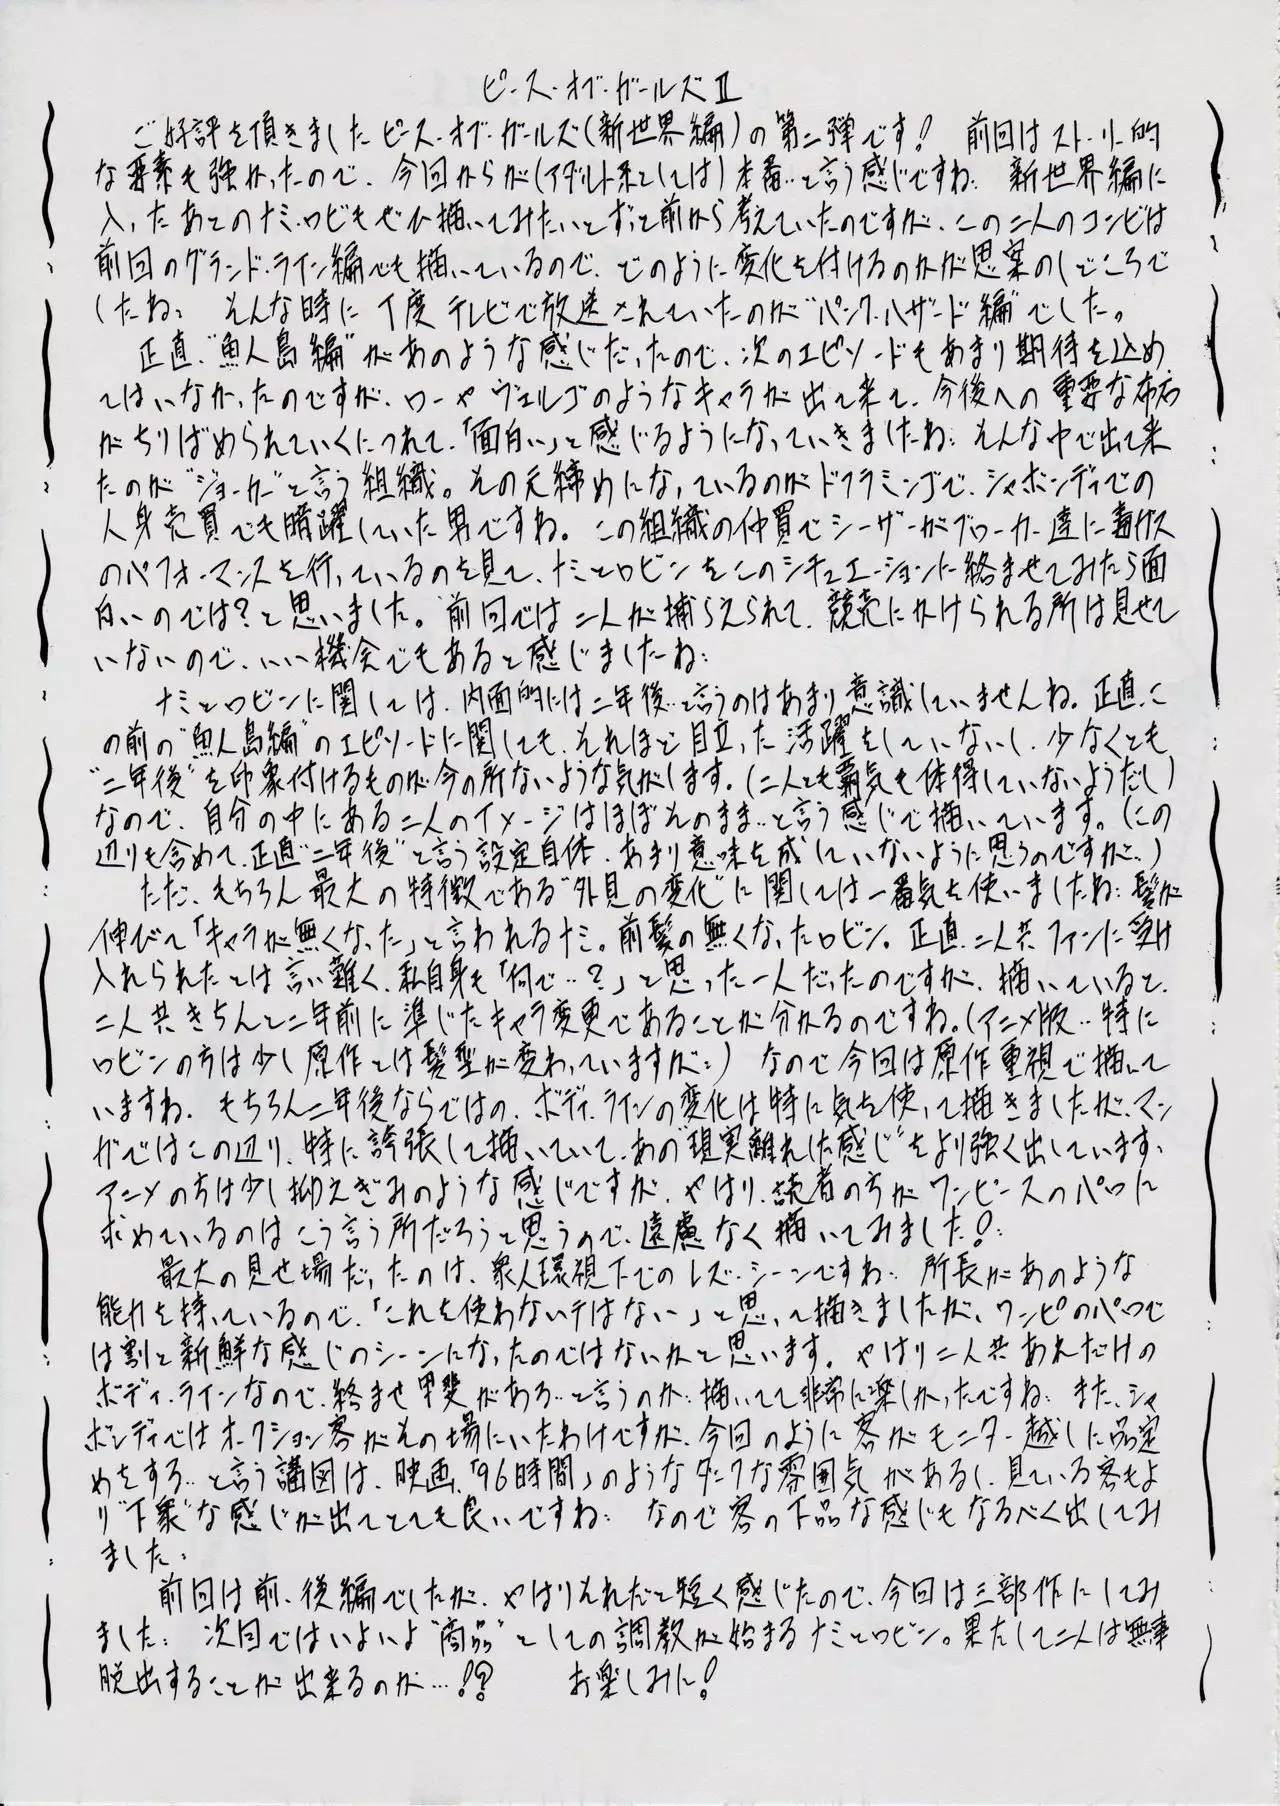 ピース・オブ・ガールズⅡ
ご好評を頂きましたピース・オブ・ガールズ(新世界編)の第二弾です! 前回はストーリー的
な要素も強かったので、今回からが(アダルト系としては)本番‥と言う感じですね‥ 新世界編に
入ったあとのナミ・ロビもぜひ描いてみたいとずっと前から考えていたのですが、この二人のコンビは
前回のグランド・ライン編でも描いているので、どのように変化を付けるのかが思案のしどころで
したね‥ そんな時に丁度テレビで放送されていたのが“パンク・ハザード編”でした。
正直、“魚人島編”があのような感じだったので、次のエピソードもあまり期待を込め
てはいなかったのですが、ローやヴェルゴのようなキャラが出て来て、今後への重要な布石
がちりばめられていくにつれて、「面白い」と感じるようになっていきましたね‥ そんな中で出て来
たのが“ジョーカー”と言う組織。その元締めになっているのがドフラミンゴで、シャボンディでの
人身売買でも暗躍していた男ですね。この組織の仲買でシーザーがブローカー達に毒ガス
のパフォーマンスを行っているのを見て、ナミとロビンをこのシチュエーションに絡ませてみたら面
白いのでは?と思いました。前回では二人が捕らえられて、競売にかけられる所は見せて
いないので、いい機会でもあると感じましたね‥
ナミとロビンに関しては、内面的には二年後‥と言うのはあまり意識していませんね。正直、こ
の前の“魚人島編”のエピソードに関しても、それほど目立った活躍をしていないし、少なくとも
“二年後”を印象付けるものが今の所ないような気がします。(二人とも覇気も体得していないようだし)
なので、自分の中にある二人のイメージはほぼそのまま‥と言う感じで描いています。(この
辺りも含めて、正直“二年後”と言う設定自体、あまり意味を成していないように思うのですが‥)
ただ、もちろん最大の特徴である“外見の変化”に関しては一番気を使いましたね‥髪が
伸びて「キャラが無くなった」と言われるナミ。前髪の無くなったロビン。正直、二人共ファンに受け
入れられたとは言い難く、私自身も「何で‥?」と思った一人だったのですが、描いていると、
二人共きちんと二年前に準じたキャラ変更であることが分かるのですね。(アニメ版‥特に
ロビンの方は少し原作とは髪型が変わっていますが‥) なので今回は原作重視で描いて
いますね。もちろん二年後ならではの、ボディ・ラインの変化は特に気を使って描きましたが、マン
ガではこの辺り、特に誇張して描いていて、あの“現実離れした感じ”をより強く出しています、
アニメの方は少し抑えぎみのような感じですが、やはり、読者の方がワンピースのパロに
求めているのはこう言う所だろうと思うので、遠慮なく描いてみました!
最大の見せ場だったのは、衆人環視下でのレズ・シーンですね‥ 所長があのような
能力を持っているので、「これを使わないテはない」と思って描きましたが、ワンピのパロで
は割と新鮮な感じのシーンになったのではないかと思います。やはり二人共あれだけの
ボディ・ラインなので、絡ませ甲斐がある‥と言うのか‥描いてて非常に楽しかったですね‥ また、シャ
ボンディではオークション客がその場にいたわけですが、今回のように客がモニター越しに品定
めをする‥と言う構図は、映画、「96時間」のようなダークな雰囲気があるし、見ている客もよ
り“下衆”な感じが出てとても良いですね‥ なので客の下品な感じもなるべく出してみ
ました‥
前回は前、後編でしたが、やはりそれだと短く感じたので、今回は三部作にしてみ
ました‥ 次回ではいよいよ“商品”としての調教が始まるナミとロビン。果たして二人は無事
脱出することが出来るのか…!? お楽しみに!